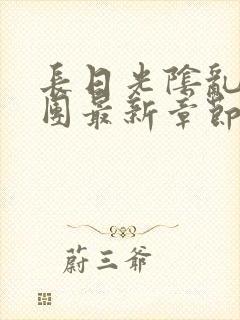 長日光陰亂
團最新章節
蔚三爷